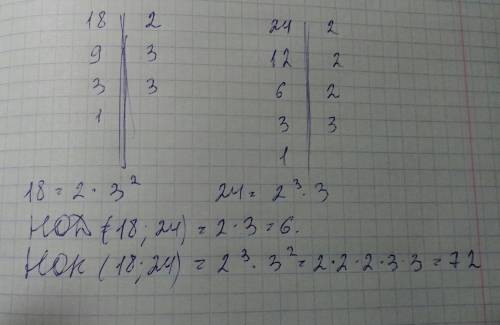 18 | 2
9 | 3
3 | 3
1 |
24 | 2
12 | 2
6 | 2
3 | 3
1 |
18 = 2 · 3² 24 = 2³ · 3
НОД (18; 24) = 2 · 3 = 6.
НОК (18; 24) = 2³ · 3² = 2 · 2 · 2 · 3 · 3 = 72